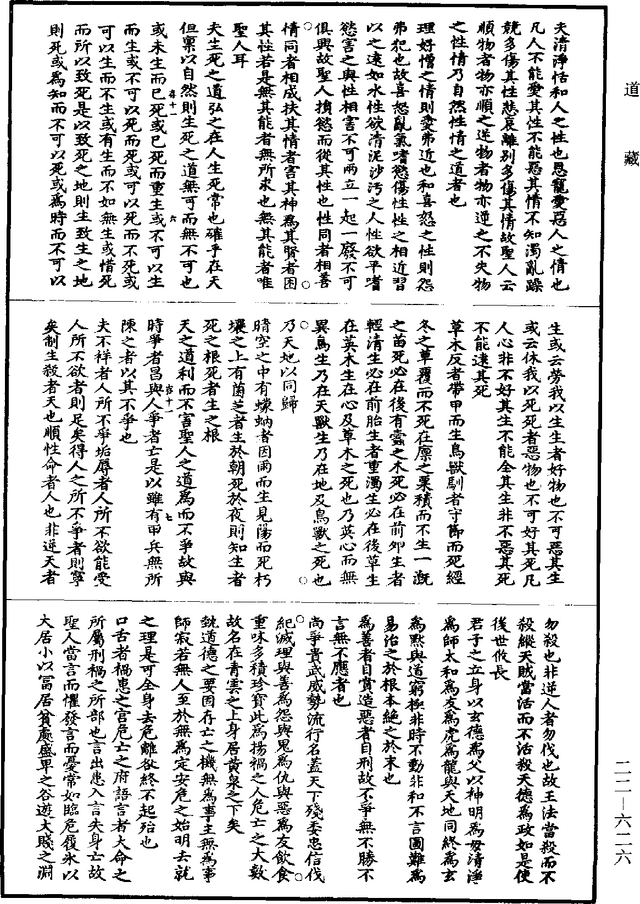 道藏
夫清淨恬和人之性也恩寵愛惡人之情也
凡人不能愛其性不能惡其情不知濁亂躁
競多傷其性悲哀離別多傷其情故聖人云
順物者物亦順之逆物者物亦逆之不失物
之性情乃自然性情之道者也
理好憎之情則愛弗近也和喜怒之性則怨
弗犯也故喜怒亂氣嗜慾傷性性之相近習
以之遠如水性欲清泥沙污之人性欲平嗜
慾害之與性相害不可兩立一起一廢不可
俱興故聖人損慾而從其性也性同者相善
情同者相成扶其情者害其神為其賢者困
其性若是無其能者無所求也無其能者唯
聖人耳
夫生死之道弘之在人生死常也確乎在天
但稟以自然則生死之道無可而無不可也
或未生而已死或已死而重生或不可以生
而生或不可以死而死或可以死而不死或
可以生而不生或有生而不如無生或惜死
而所以致死是以致死之地則生致生之地
則死或為知而不可以死或為時而不可以
生或云勞我以生生者好物也不可惡其生
或云休我以死死者惡物也不可好其死凡
人心非不好其生不能全其生非不惡其死
不能遠其死
草木反者帶甲而生鳥獸馴者守節而死經
冬之草覆而不死在廩之粟積而不生一溉
之苗死必在後有蠹之木死必在前卵生者
輕清生必在前胎生者重濁生必在後草生
在英木生在心及草木之死也乃英心而無
異鳥生乃在天獸生乃在地及鳥獸之死也
乃天地以同歸
晴空之中有蠓蚋者因雨而生見陽而死朽
壤之上有菌芝者生於朝死於夜則知生者
死之根死者生之根
天之道利而不害聖人之道為而不爭故與
時爭者昌與人爭者亡是以雖有甲兵無所
陳之者以其不爭也
夫不祥者人所不爭垢辱者人所不欲能受
人所不欲者則足矣得人之所不爭者則寧
矣制生殺者天也順性命者人也非逆天者
勿殺也非逆人者勿伐也故王法當殺而不
殺縱天賊當活而不活殺天德為政如是使
後世攸長
君子之立身以玄德為父以神明為母清淨
為師太和為友為虎為龍與天地同終為玄
為默與道窮極非時不動非和不言圖難為
易治之於根本絕之於末也
為善者自賞造惡者自刑故不爭無不勝不
言無不應者也
尚爭貴武威勢流行名蓋天下殘委忠信伐
紀滅理與善為怨與鬼為仇與惡為友飲食
重味多積珍寶此為揚禍之人危亡之大數
故名在青雲之上身居黃泉之下矣
執道德之要固存亡之機無為事主無為事
師寂若無人至於無為定安危之始明去就
之理是可全身去危離欲終不起殆也
口舌者禍患之宮危亡之府語言者大命之
所屬刑禍之所部也言出患入言失身亡故
聖人當言而懼發言而憂常如臨危履氷以
大居小以富居貧處盛卑之谷遊大賤之淵
二二—六二六